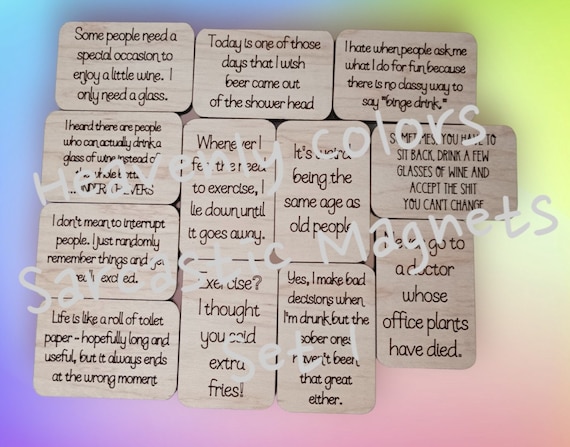 Some people need a
special occasion to
enjoy a little wine. I
only need a glass.
Today is one of those
days that I wish
beer came out
of the shower head
I hate when people ask me
what I do for fun because
there is no classy way to
say "binge drink."
I heard there are people
who can actually drink a
glass of wine instead of
the whole bottle
Whenever I
feel the need
to exercise, I
lie down until
it goes away.
It's weird
being the
same age as
old people
SOMETIMES, YOU HAVE TO
SIT BACK, DRINK A FEW
GLASSES OF WINE AND
ACCEPT THE SHIT
YOU CAN'T CHANGE
I don't mean to interrupt
people. I just randomly
remember things and get
really excited.
Exercise?
I thought
you said
extra
fries!
Yes, I make bad
decisions when
I'm drunk but the
sober ones
haven't been
that great
either.
go to
a doctor
whose
office plants
have died.
Life is like a roll of toilet
paper - hopefully long and
useful, but it always ends
at the wrong moment
Heavenly Colors
Sarcastic Magnets